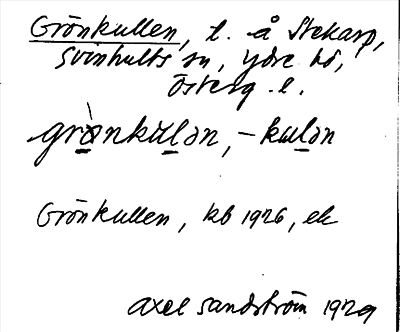 Grönkullen, l. å Stekarp,
Svinhults sn, Ydre hd,
Österg. l.
grönkulən, -kulən
Grönkullen, kb 1926, ek
Axel Sandström 1929